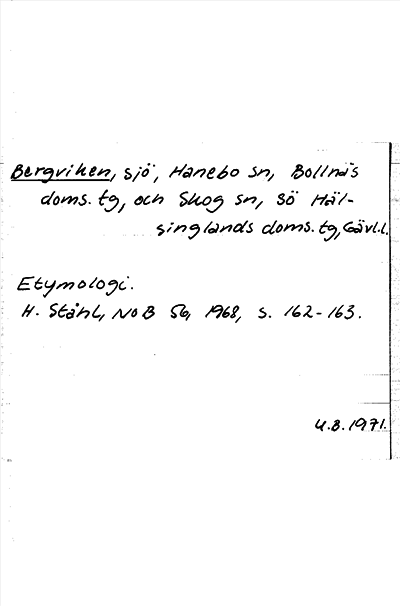 Bergviken, sjö, Hanebo sn, Bollnäs
doms. tg, och Skog sn, Sö Häl-
singlands doms. tg, Gävl.l.
Etymologi.
H. Ståhl, NoB 56, 1968, s. 162-163.
U.B. 1971.